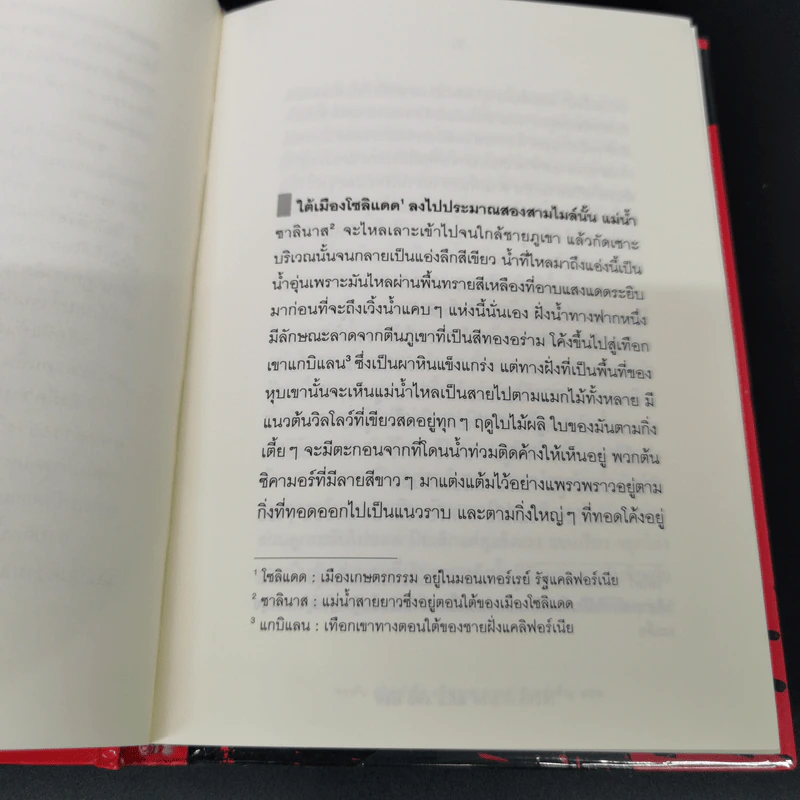 ใต้เมืองโซลิแดด¹ ลงไปประมาณสองสามไมล์นั้น แม่น้ำ
ซาลินาส² จะไหลเลาะเข้าไปจนใกล้ชายภูเขา แล้วกัดเซาะ
บริเวณนั้นจนกลายเป็นแอ่งลึกสีเขียว น้ำที่ไหลมาถึงแอ่งนี้เป็น
น้ำอุ่นเพราะมันไหลผ่านพื้นทรายสีเหลืองที่อาบแสงแดดระยิบ
มาก่อนที่จะถึงเวิ้งน้ำแคบๆ แห่งนี้นั่นเอง ฝั่งน้ำทางฟากหนึ่ง
มีลักษณะลาดจากตีนภูเขาที่เป็นสีทองอร่าม โค้งขึ้นไปสู่เทือก
เขาแกบิแลน³ ซึ่งเป็นผาหินแข็งแกร่ง แต่ทางฝั่งที่เป็นพื้นที่ของ
หุบเขานั้นจะเห็นแม่น้ำไหลเป็นสายไปตามแมกไม้ทั้งหลาย มี
แนวต้นวิลโลว์ที่เขียวสดอยู่ทุกๆ ฤดูใบไม้ผลิ ใบของมันตามกิ่ง
เตี้ยๆ จะมีตะกอนจากที่โดนน้ำท่วมติดค้างให้เห็นอยู่ พวกต้น
ซิคามอร์ที่มีลายสีขาวๆ มาแต่งแต้มไว้อย่างแพรวพราวอยู่ตาม
กิ่งที่ทอดออกไปเป็นแนวราบ และตามกิ่งใหญ่ๆ ที่ทอดโค้งอยู่
¹ โซลิแดด : เมืองเกษตรกรรม อยู่ในมอนเทอร์เรย์ รัฐแคลิฟอร์เนีย
² ซาลินาส : แม่น้ำสายยาวซึ่งอยู่ตอนใต้ของเมืองโซลิแดด
³ แกบิแลน : เทือกเขาทางตอนใต้ของชายฝั่งแคลิฟอร์เนีย